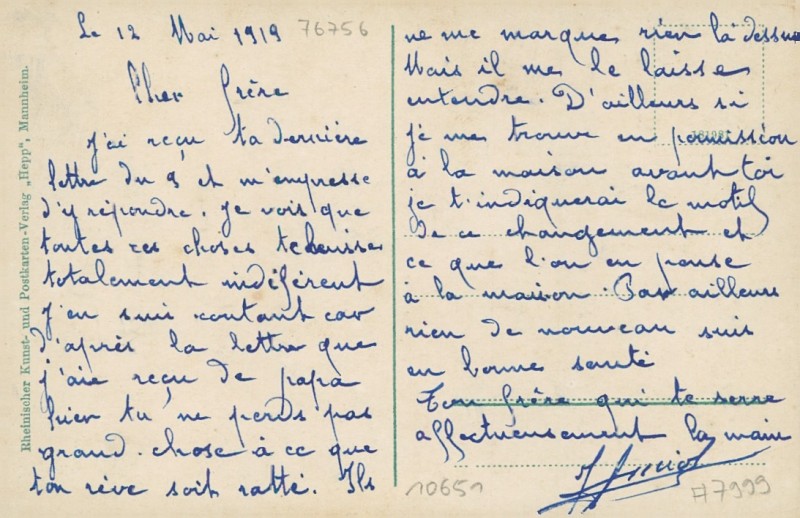 Rheinischer Kunst- und Postkarten-Verlag „Hepp", Mannheim.
Le 12 Mai 1919 76756
Cher frère
J'ai reçu ta dernière
lettre du 9 et m'empresse
d'y répondre. Je vois que
toutes ces choses te laisse
totalement indiférent
J'en suis contant car
d'après la lettre que
j'aie reçu de papa
hier tu ne perds pas
grand. chose à ce que
ton rêve soit ratté. Ils
ne me marque rien là dessus
Mais il me le laisse
entendre. D'ailleurs si
je me trouve en permission
à la maison avant toi
je t'indiquerai le motif
de ce changement et
ce que l'on en pense
à la maison. Par ailleurs
rien de nouveau suis
en bonne santé
Ton frère qui te serre
affectueusement la main
10651
#7999